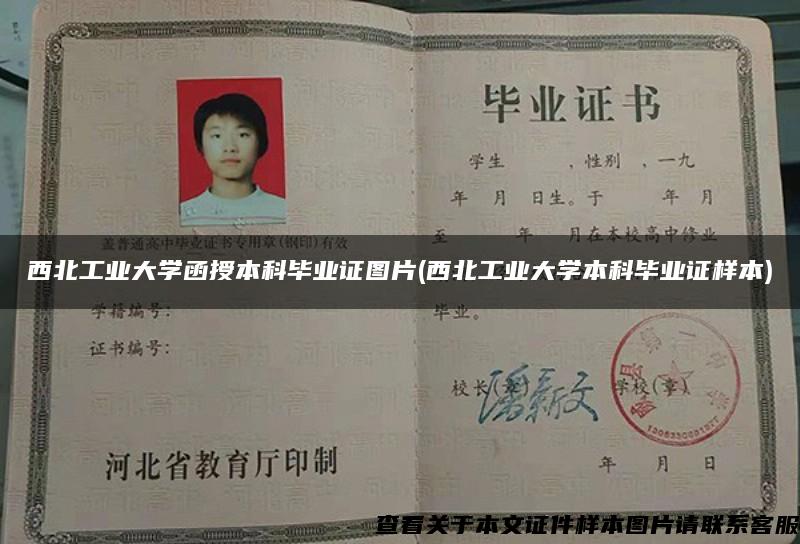 毕业证书
学生 , 性别 , 一九
年 月 日生。于 年 月
至 年 月在本校高中修业
盖普通高中毕业证书专用章(钢印)有效
西北工业大学函授本科毕业证图片(西北工业大学本科毕业证样本)
学籍编号:
毕业。
证书编号:
校长(章)
潘新文
学校(章)
县第一中
河北省教育厅印制
年 月 日
查看关于本文证件样本图片请联系客服